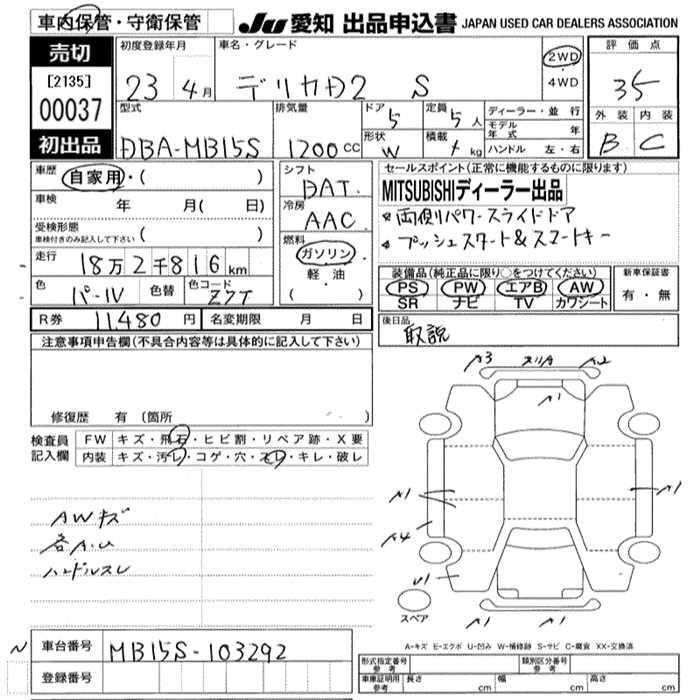 車内保管・守衛保管
JU 愛知 出品申込書 JAPAN USED CAR DEALERS ASSOCIATION
売切
[2135]
00037
初出品
初度登録年月
23 4月
車名・グレード
デリカD2 S
2WD
4WD
評価点
35
外装 内装
B C
型式
DBA-MB15S
排気量
1200cc
ドア
5
形状
W
定員
5人
積載
kg
ディーラー・並行
モデル年式 年
ハンドル 左・右
車歴
自家用・( )
車検 年 月( 日)
受検形態
車検付きのみ記入して下さい ( )
走行 18万2千816km
色 パール 色替 色コード Z7T
シフト
DAT
冷房
AAC
燃料
ガソリン
・
軽油
( )
セールスポイント(正常に機能するものに限ります)
MITSUBISHIディーラー出品
両側パワースライドドア
プッシュスタート&スマートキー
装備品(純正品に限り○をつけてください)
PS PW エアB AW
SR ナビ TV カワシート
新車保証書
有・無
R券 11,480円 名変期限 月 日
後日品
取説
注意事項申告欄(不具合内容等は具体的に記入して下さい)
修復歴 有(箇所
検査員記入欄
FW キズ・飛石・ヒビ割・リペア跡・X要
内装 キズ・汚レ・コゲ・穴・スレ・キレ・破レ
AWキズ
各A.U
ハンドルスレ
A3 ヌリA A2
A1
A1
A1
A4
U1
A1
A1
スペア
A-キズ E-エクボ U-凹み W-補修跡 S-サビ C-腐食 XX-交換済
N
車台番号 MB15S-103292
登録番号
形式指定番号 参考
類別区分番号 参考
車庫証明用 参考 長さ cm 幅 cm 高さ cm